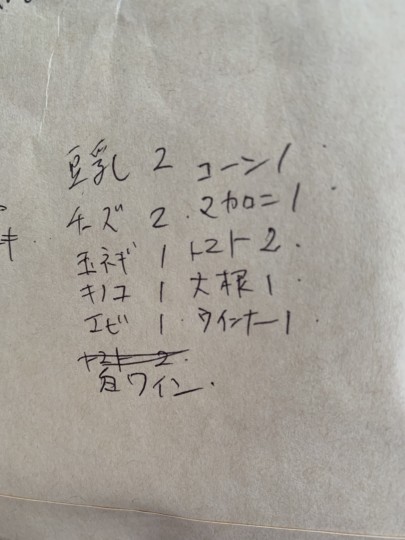 豆乳 2 コーン 1
チーズ 2 マカロニ 1
玉ネギ 1 トマト 2
キノコ 1 大根 1
エビ 1 ウインナー 1
トマト 2
白ワイン
キ